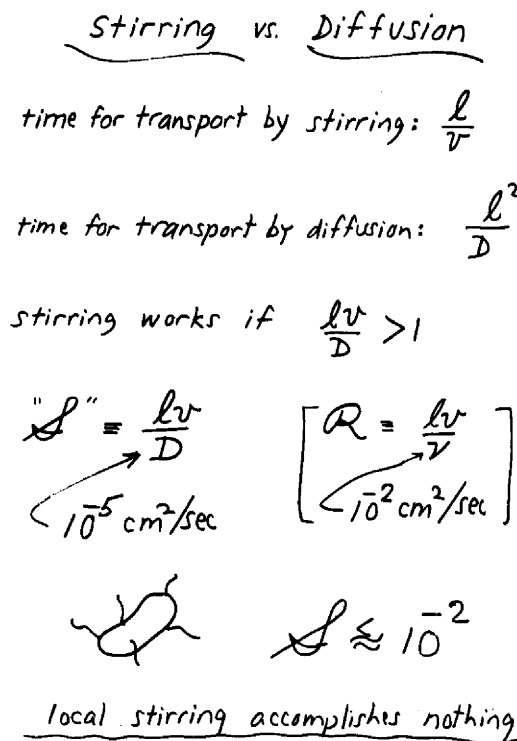 Stirring vs. Diffusion
time for transport by stirring: l/v
time for transport by diffusion: l²/D
stirring works if lv/D > 1
"S" ≡ lv/D [R = lv/ν]
10⁻⁵ cm²/sec 10⁻² cm²/sec
S ≲ 10⁻²
local stirring accomplishes nothing